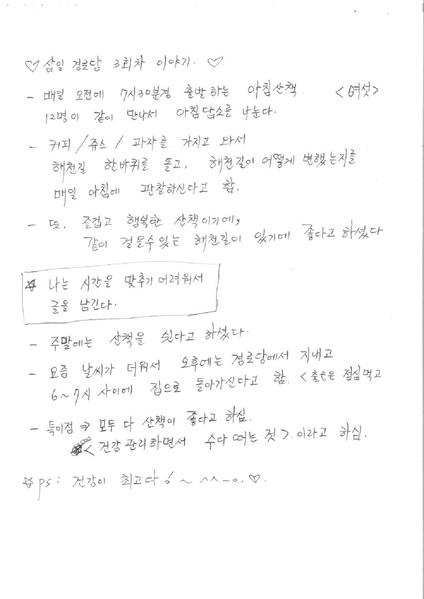 ♡ 삼일 경로당 3회차 이야기. ♡
- 매일 오전에 7시30분경 출발하는 아침산책 <여섯>
12명이 같이 만나서 아침담소를 나눈다.
- 커피/쥬스/과자를 가지고 와서
해천길 한바퀴를 돌고, 해천길이 어떻게 변했는지를
매일 아침에 관찰하신다고 함.
- 또, 즐겁고 행복한 산책이기에,
같이 걸을수있는 해천길이 있기에 좋다고 하셨다
☆ 나는 시간을 맞추기 어려워서
글을 남긴다.
- 주말에는 산책을 쉿다고 하셨다.
- 요즘 날씨가 더워서 오후에는 경로당에서 지내고
6~7시 사이에 집으로 돌아가신다고 함. <점심먹고
- 특이점 ⇒ 모두 다 산책이 좋다고 하심.
<건강관리하면서 수다 떠는 것>이라고 하심.
☆ps: 건강이 최고다! ~ ^^ -o. ♡.